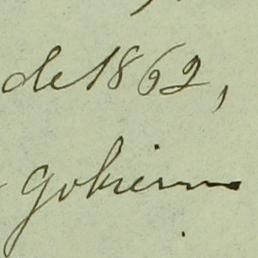 de 1862,
gobierno